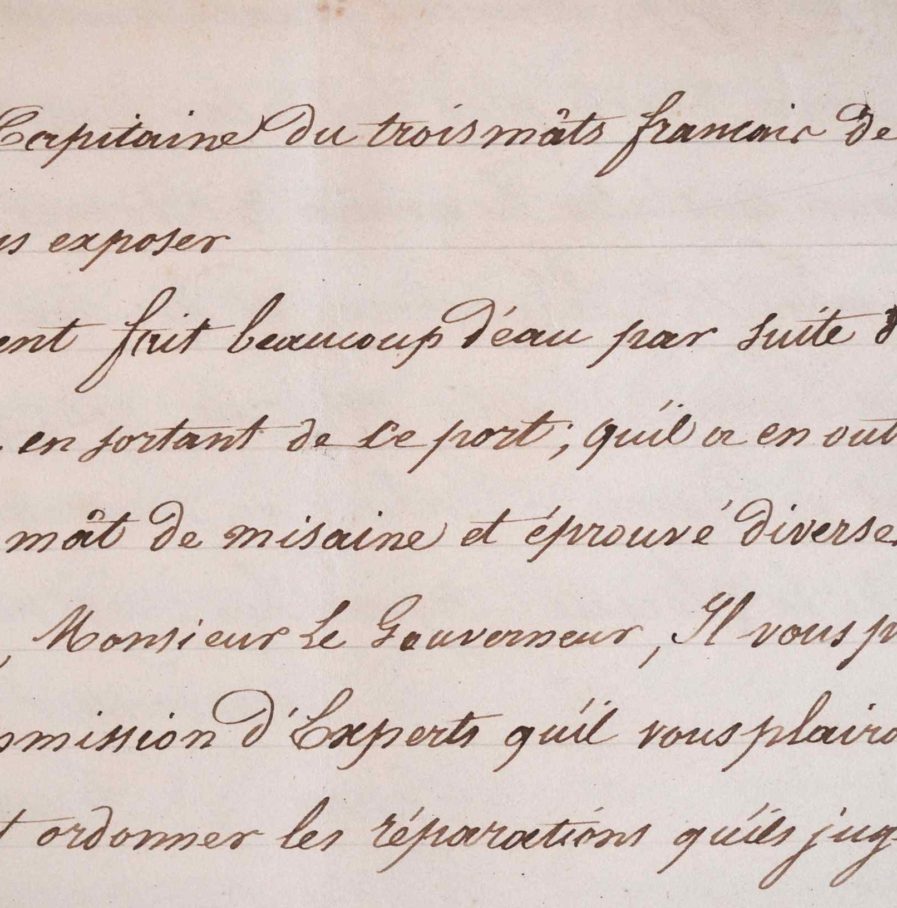 Capitaine du trois mâts francais de
us exposer
ent fait beaucoup d'eau par suite d
en sortant de ce port; qu'il a en out
mât de misaine et éprouvé diverse
, Monsieur Le Gouverneur, Il vous p
mmission d'Experts qu'il vous plaira
t ordonner les réparations qu'ils jug